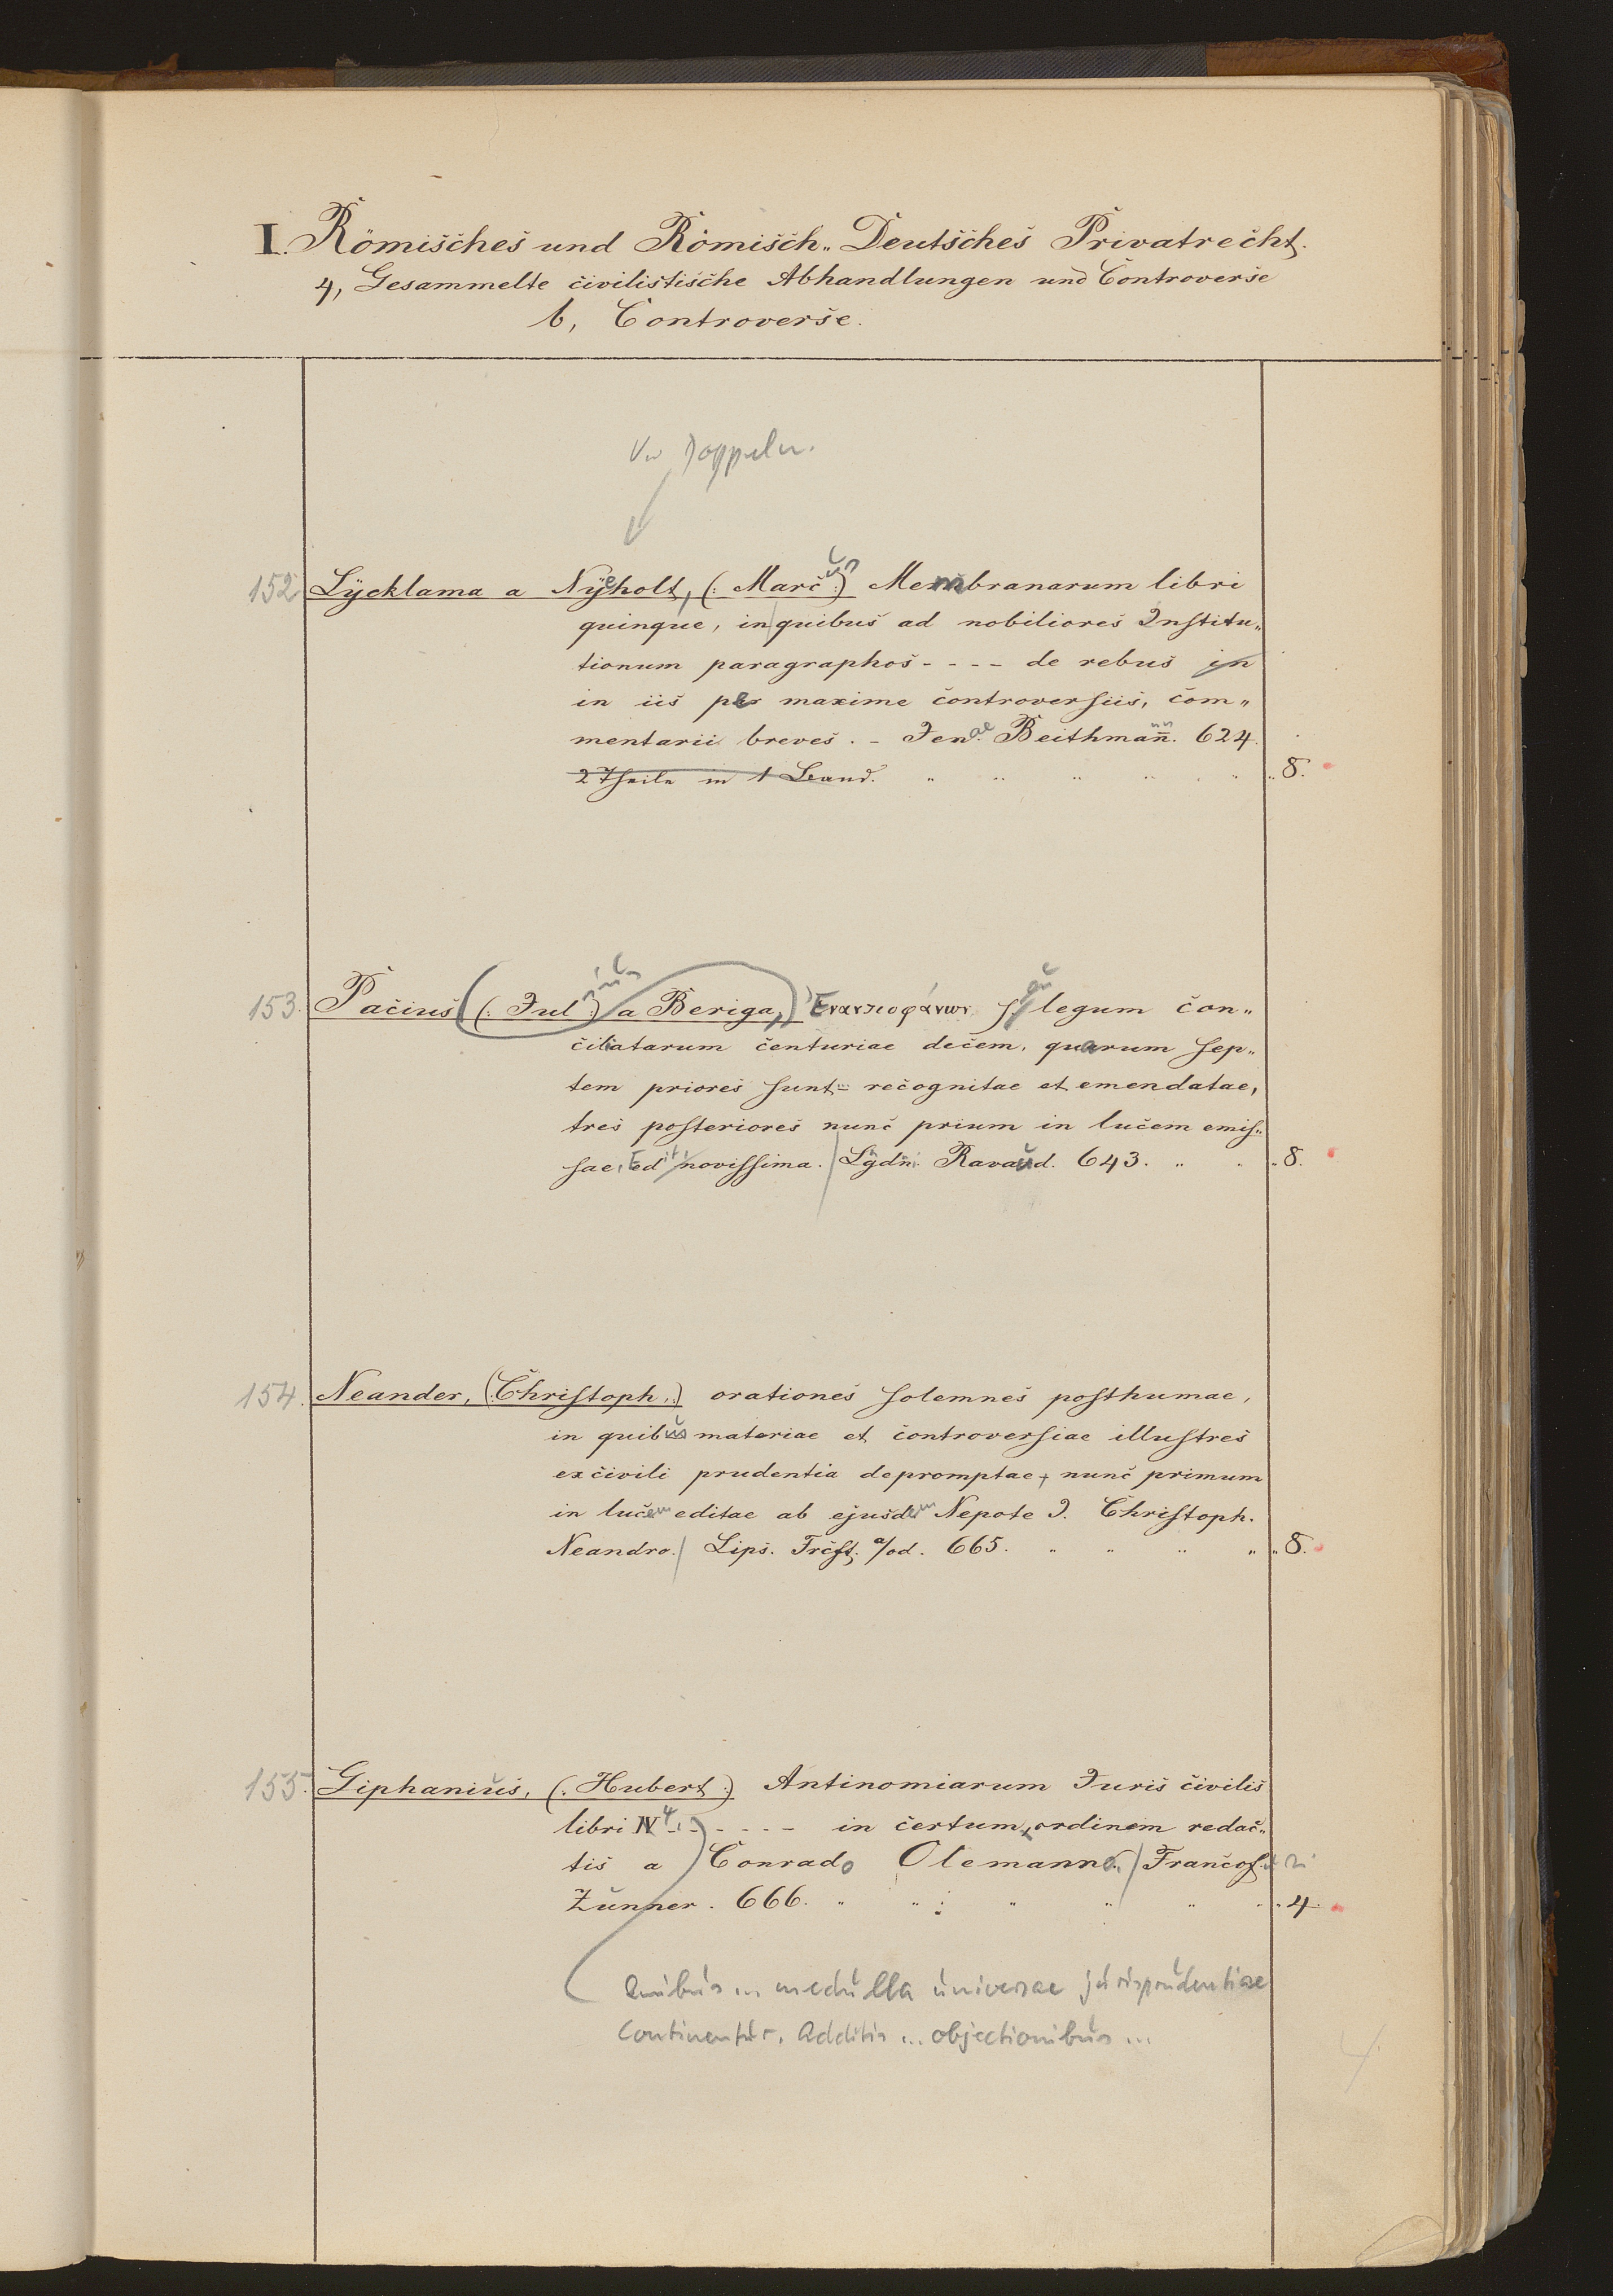 I. Römisches und Römisch-Deutsches Privatrecht.
4, Gesammelte civilistische Abhandlungen und Controverse
b, Controverse.
152 Lycklama a Nyeholt, (: Marc :) Membranarum libri
quinque, in quibus ad nobiliores Institu„
tionum paragraphos - - - - de rebus in
in iis per maxime controversiis, com„
mentarii breves. - Jenae Beithmann. 624.
2 Theile in 1 Band. 8.
153. Pacius (: Jul :) a Beriga, Ἐναντιοφάνων s. legum con„
ciliatarum centuriae decem, quarum sep„
tem priores sunt recognitae et emendatae,
tres posteriores nunc prium in lucem emis„
sae, Edit. novissima. Lgdn. Ravaud. 643. 8.
154. Neander, (: Christoph :) orationes solemnes posthumae,
in quibus materiae et controversiae illustres
ex civili prudentia depromptae, nunc primum
in lucem editae ab ejusdem Nepote J. Christoph.
Neandro. Lips. Frcft. a/od. 665. 8.
155. Giphanius, (: Hubert :) Antinomiarum Juris civilis
libri IV 4 - - - - - in certum ordinem redac„
tis a Conrado Olemanno. Francof.
Zunner. 666. 4.
Quibus ... medulla universae jurisprudentiae
continentur. Additis ... objectionibus ...